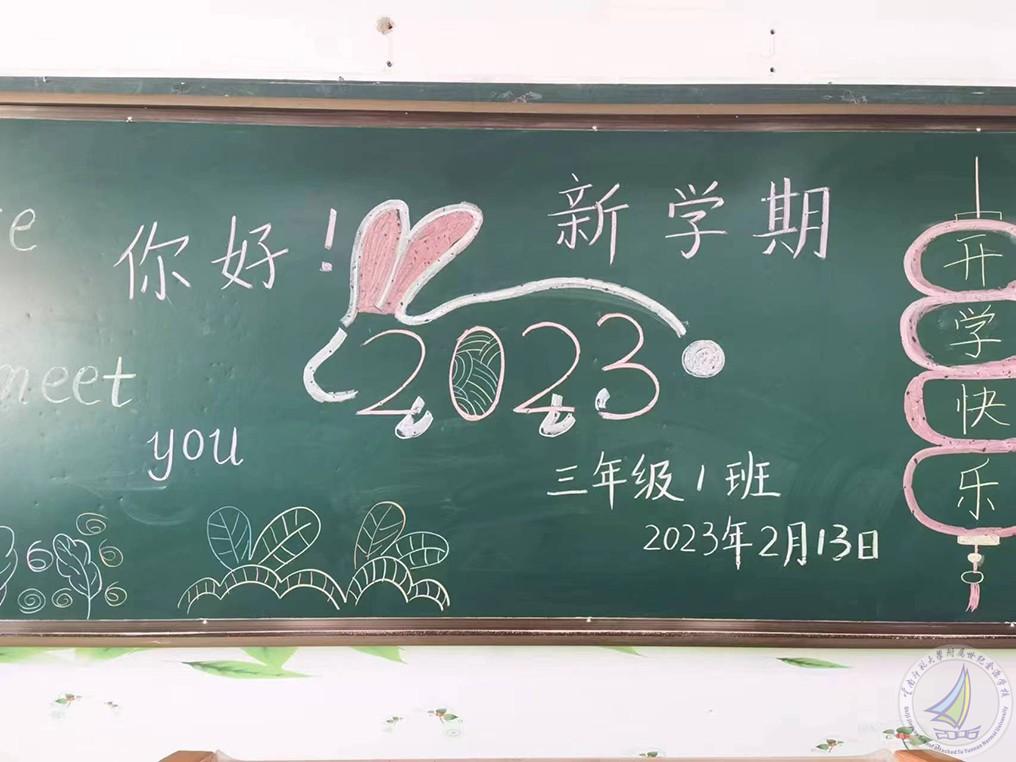 你好！
新学期
meet
you
2023
三年级1班
2023年2月13日
开
学
快
乐